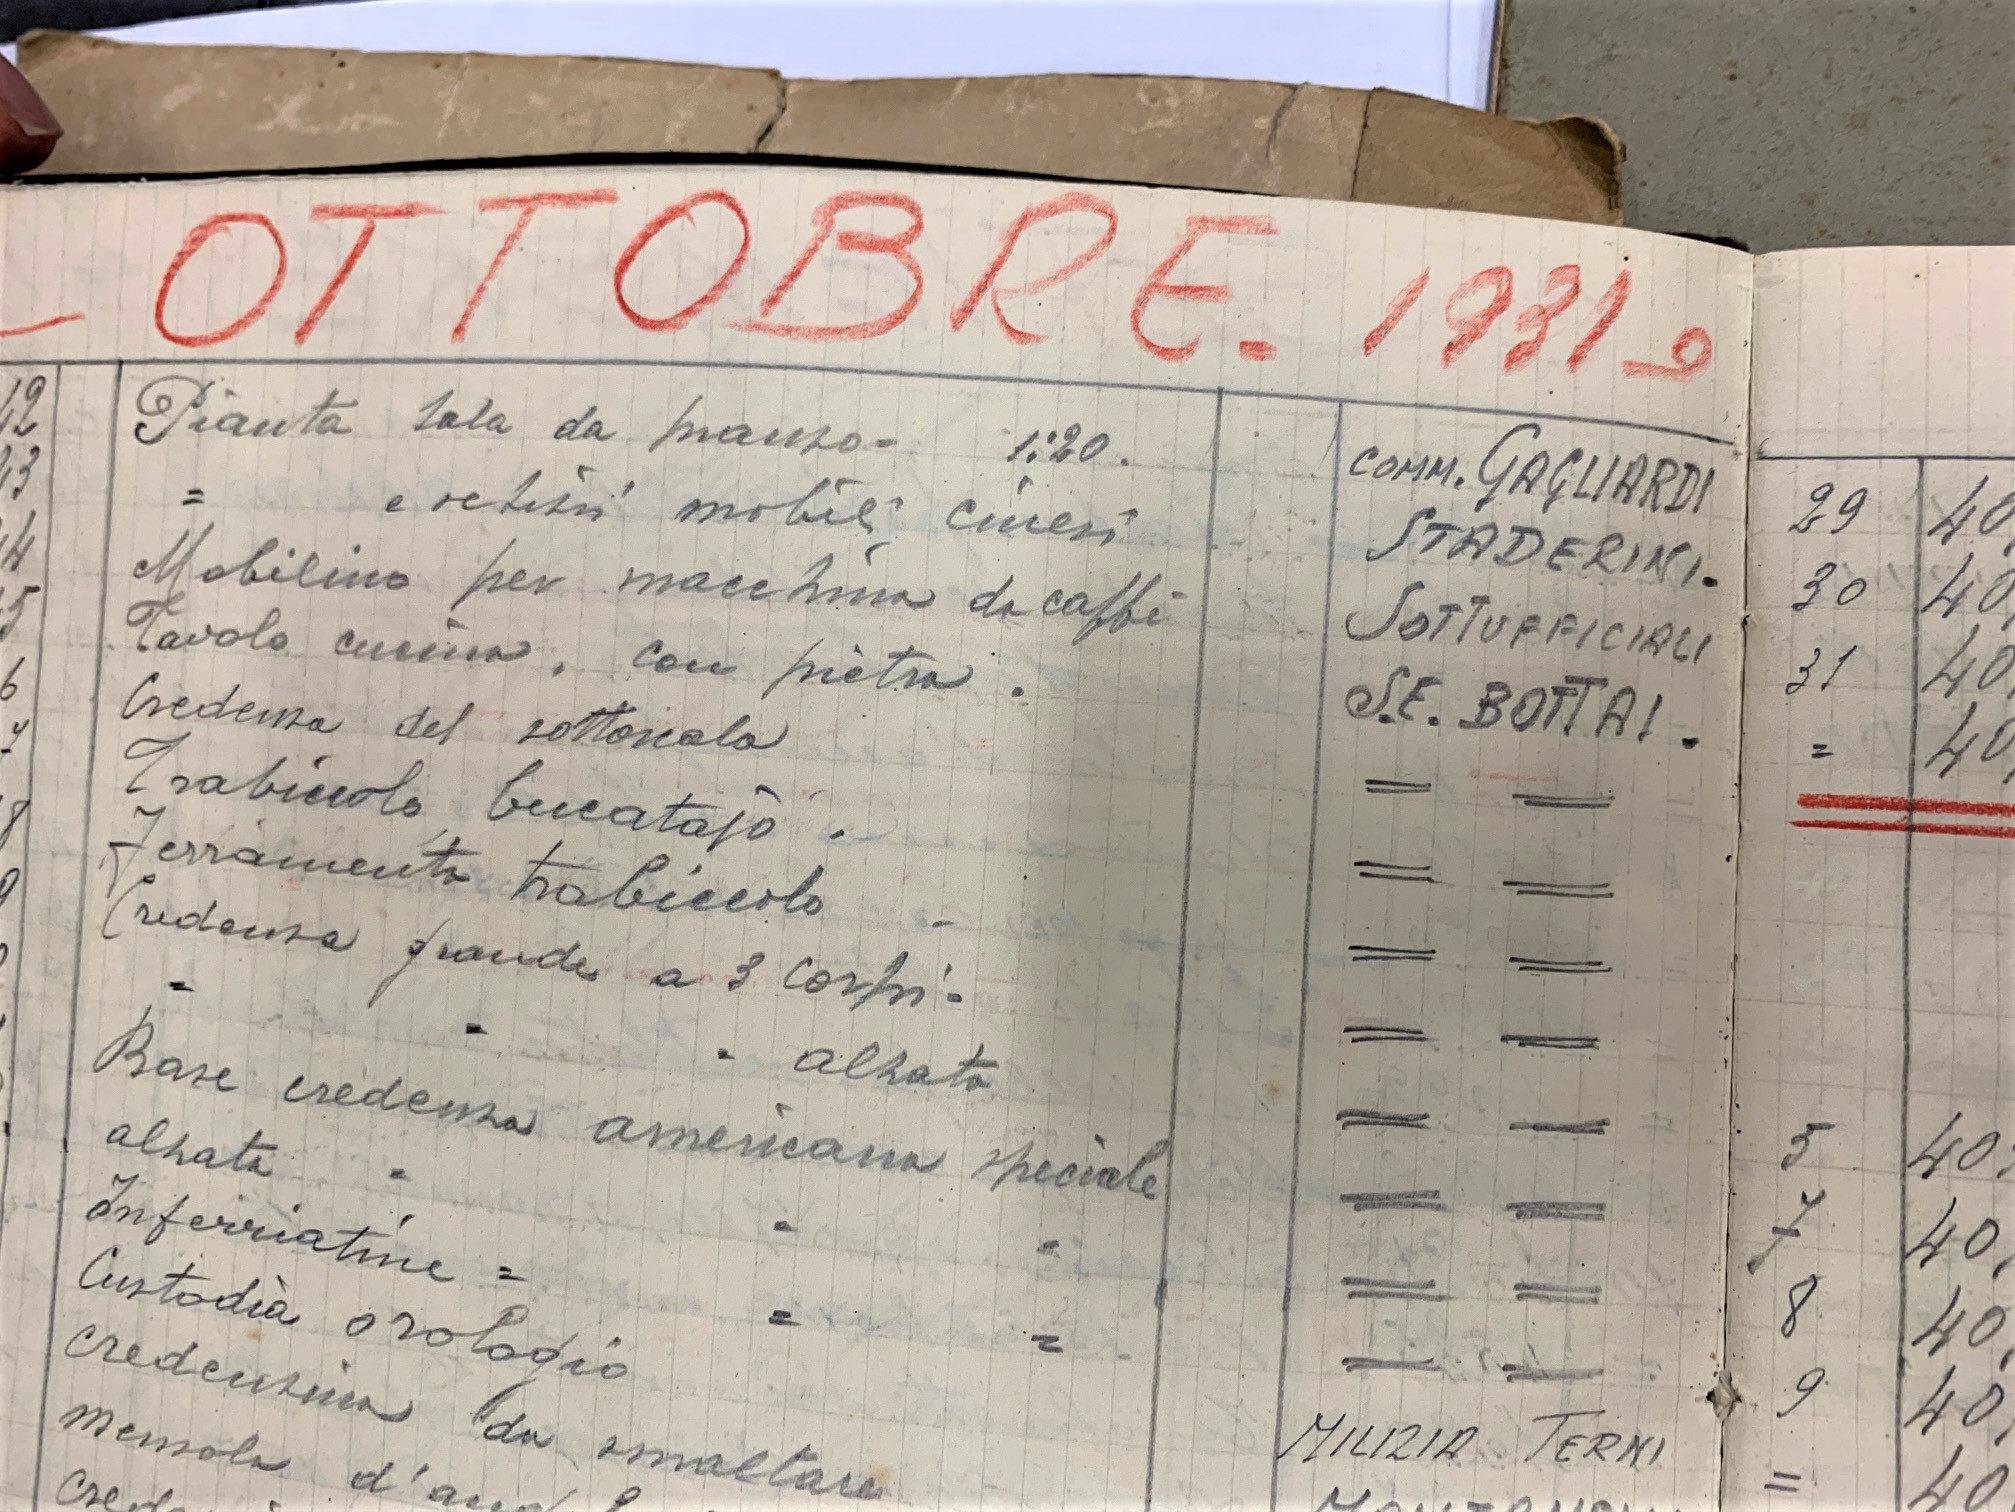 OTTOBRE. 1931
12 Pianta sala da pranzo- 1:20. COMM. GAGLIARDI 29 40,
13 = e mobili cinesi STADERINI. 30 40,
14 Mobilino per macchina da caffè SOTTUFFICIALI 31 40,
15 Tavolo cucina, con pietra. S.E. BOTTAI. = 40,
6 Credenza del sottoscala = =
7 Trabiccolo bucatajo. = =
8 Ferramenta trabiccolo - = =
9 Credenza grande a 3 corpi- = =
" " " alzata = =
Base credenza americana speciale = = 5 40,
alzata " " " = = 7 40,
Inferriatine = = = = = 8 40,
Custodia orologio = = 9 40,
credenzina da smaltare MILIZIA TERNI = 40
Mensola